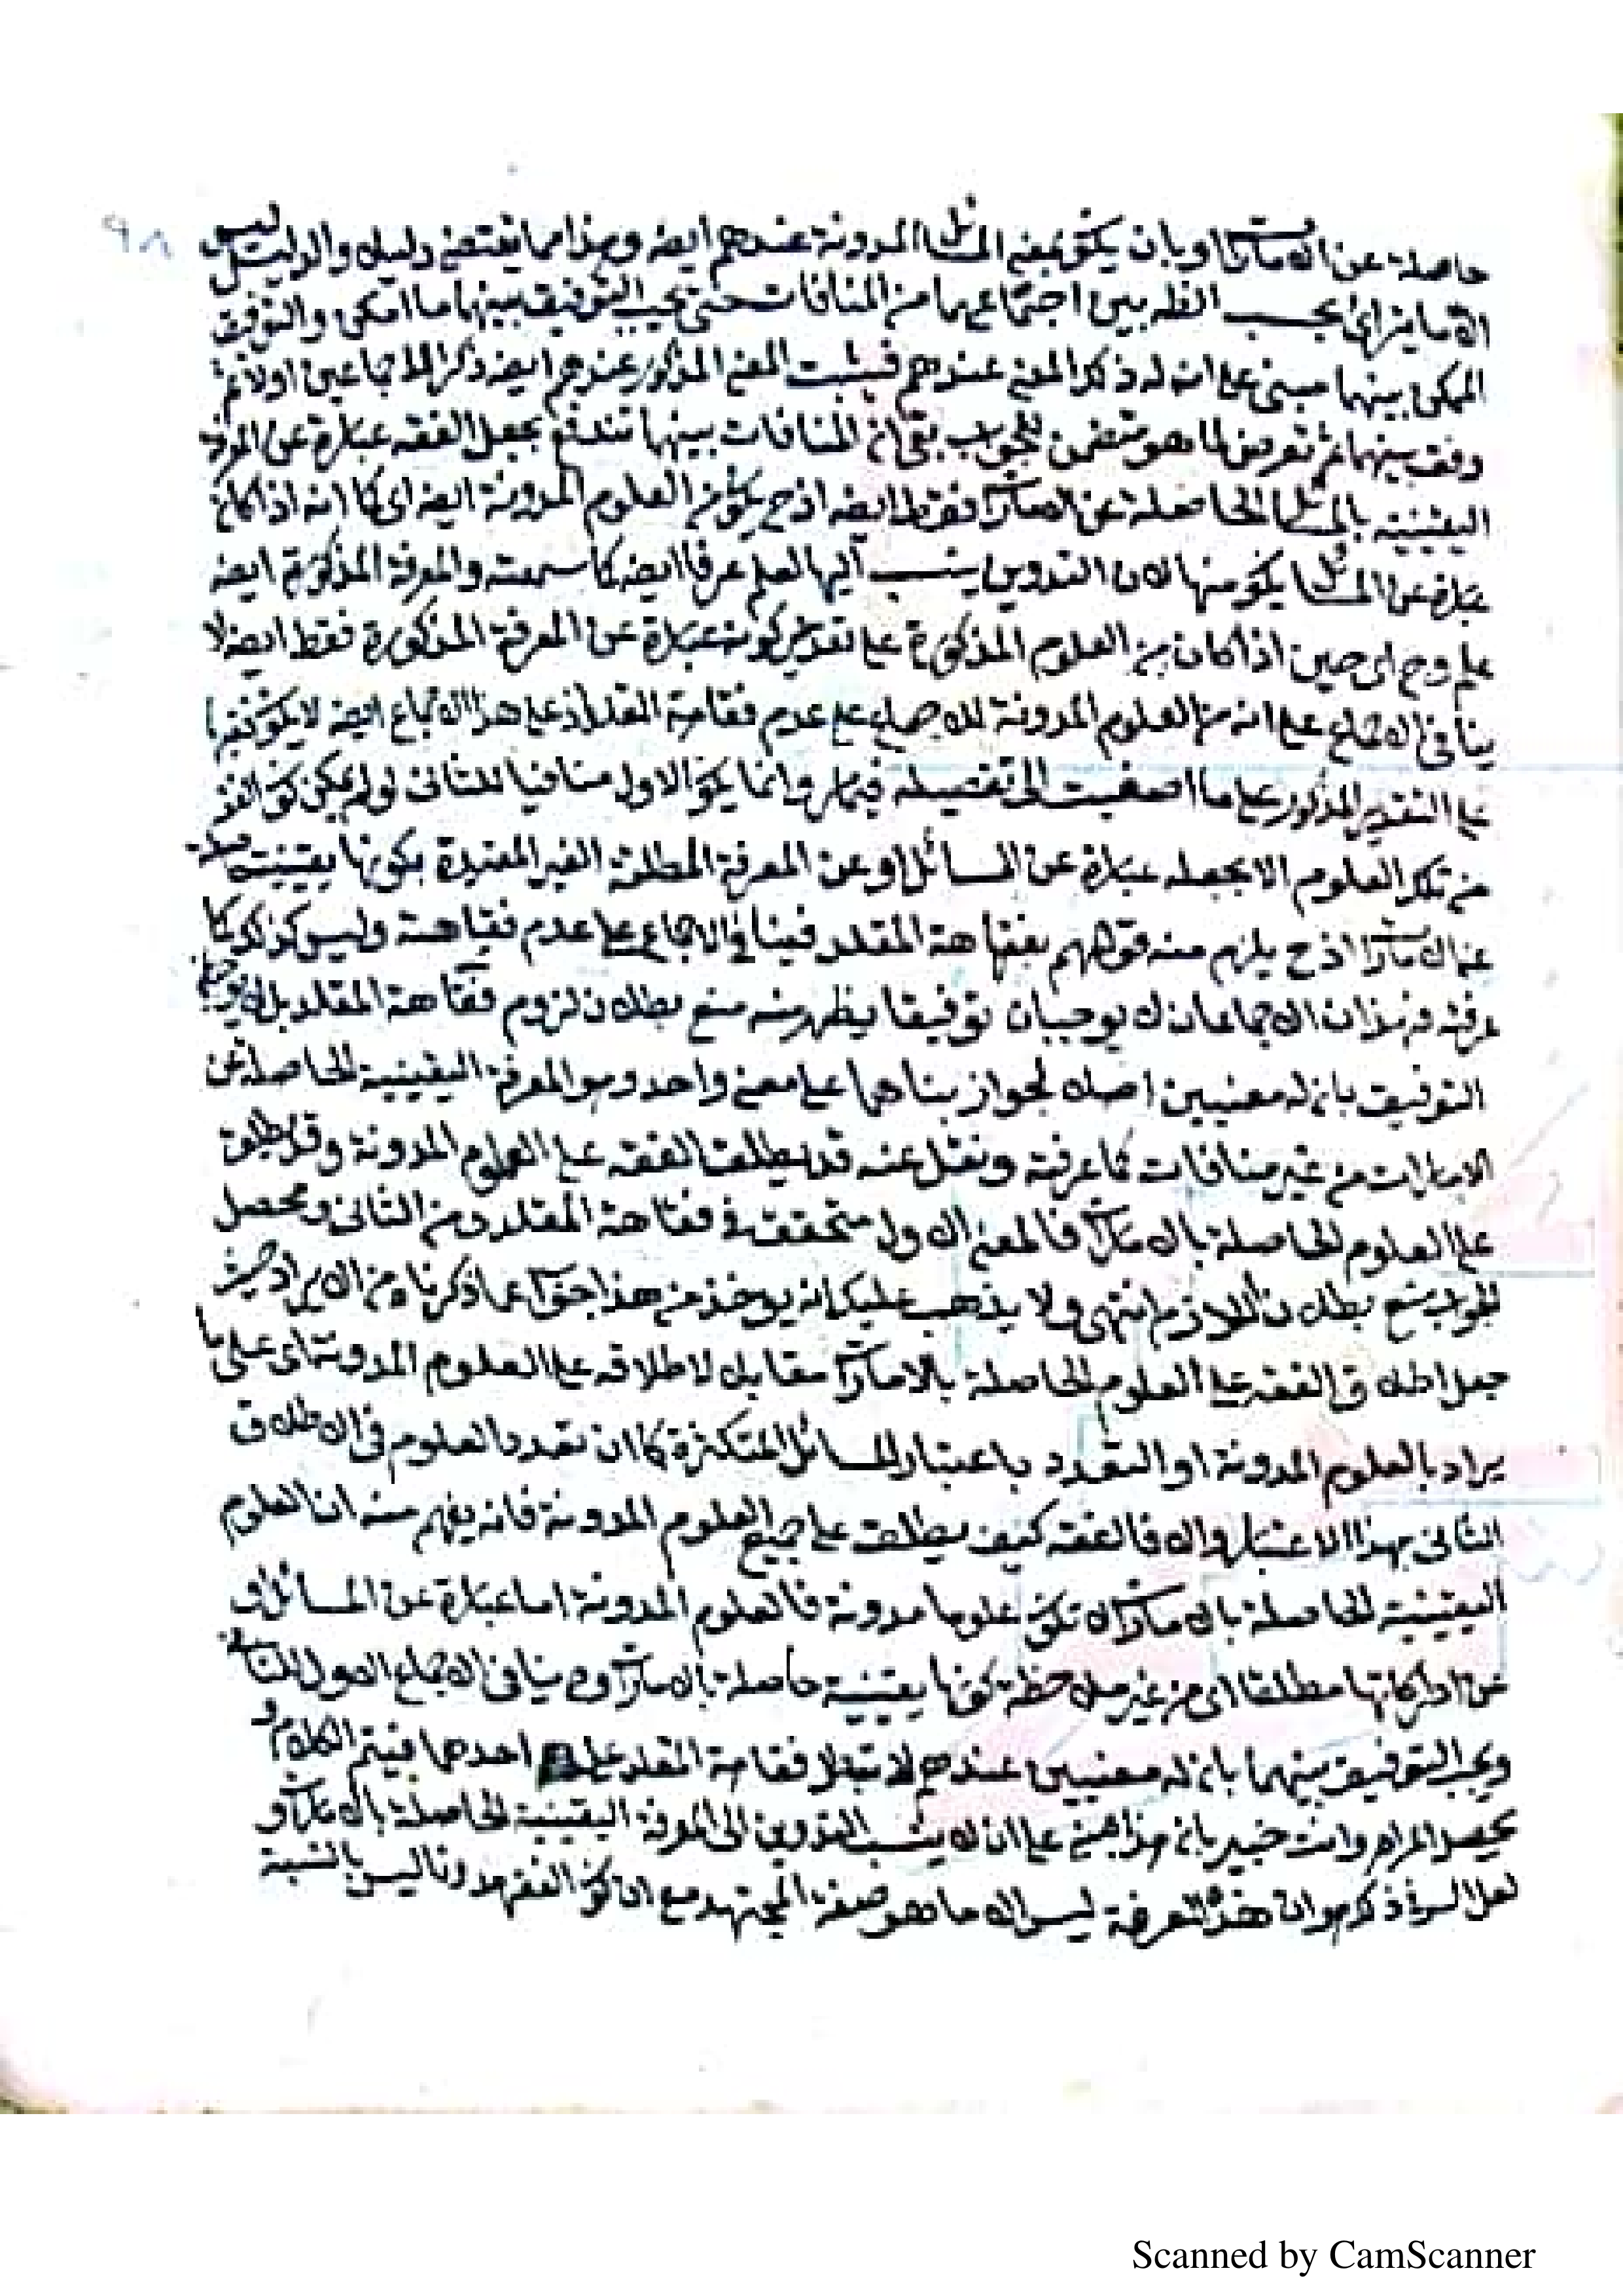 ٩٨
حاصلة عن الامارات او بان يكون بمعنى المسائل المدونة عندهم ايضه وهذا مما يقتضى دليلا والدليل ليس
الا ما يترائ بحسب الظه بين اجتماعهما من المنافات حتى يجب التوفيق بينهما ما امكن والتوفيق
الممكن بينهما مبنى على ان له ذكر المعنى عندهم فيثبت المعنى المذكور عندهم ايضه ذكر الاجماعين اولا ثم
وفق بينهما ثم تعرض لما هو متضمن للجواب بقى ان المنافات بينهما تندفع بجعل الفقه عبارة عن المعرفة
اليقينية بالمسائل الحاصلة عن الامارات فقط ايضه اذ ح يكون من العلوم المدونة ايضه اى كما انه اذا كان
عبارة عن المسائل يكون منها لان التدوين ينسب اليها العلم عرفا ايضه كما سمعته والمعرفة المذكورة ايضه
علم وح اى حين اذا كان من العلوم المذكورة على تقدير كونه عبارة عن المعرفة المذكورة فقط ايضه لا
ينافى الاجماع على انه من العلوم المدونة للاجماع على عدم فقاهة المقلد اذ على هذا الاجماع ايضه لا يكون فقيها
على التقدير المذكور على ما اصغيت الى تفصيله فيما مر وانما يكون الاول منافيا للثانى لو لم يمكن كون الفقه
من تلك العلوم الا بجعله عبارة عن المسائل او عن المعرفة المطلقة الغير المقيدة بكونها يقينية حاصلة
عن الامارات اذ ح يلزم منه قولهم بفقاهة المقلد فينافى الاجماع على عدم فقاهته وليس كذلك كما
عرفته فهذان الاجماعان لا يوجبان توفيقا يظهر منه منع بطلان لزوم فقاهة المقلد بل لا
التوفيق بان له معنيين اصلا لجواز بناهما على معنى واحد وهو المعرفة اليقينية الحاصلة عن
الامارات من غير منافات كما عرفته ونقل عنه قد يطلق الفقه على العلوم المدونة وقد يطلق
على العلوم الحاصلة بالامارات فالمعنى الاول متحقق فى فقاهة المقلد دون الثانى ومحصل
الجواب منع بطلان اللازم انتهى ولا يذهب عليك انه يوخذ من هذا جوابا عما ذكرنا من الايراد حيث
جعل اطلاق الفقه على العلوم الحاصلة بالامارات مقابلا لاطلاقه على العلوم المدونة اى على ما
يراد بالعلوم المدونة او التعدد باعتبار المسائل المتكثرة كما ان تعدد العلوم فى الاطلاق
الثانى بهذا الاعتبار والا فالفقه كيف يطلق على جميع العلوم المدونة فانه يفهم منه ان العلوم
اليقينية الحاصلة بالامارات لا تكون علوما مدونة فالعلوم المدونة اما عبارة عن المسائل او
عن ادراكاتها مطلقا اى من غير ملاحظة كونها يقينية حاصلة بالامارات وح ينافى الاجماع الاول للثانى
ويجب التوفيق بينهما بان له معنيين عندهم لا تبطل فقاهة المقلد على احدهما فيتم الكلام و
يحصل المرام وانت خبير بان هذا مبنى على ان لا ينسب التدوين الى المعرفة اليقينية الحاصلة بالامارات و
لعل السر فى ذكره هو ان هذه المعرفة ليس الا ما هو صفة المجتهد مع ان كون الفقه مدونا ليس بالنسبة
Scanned by CamScanner